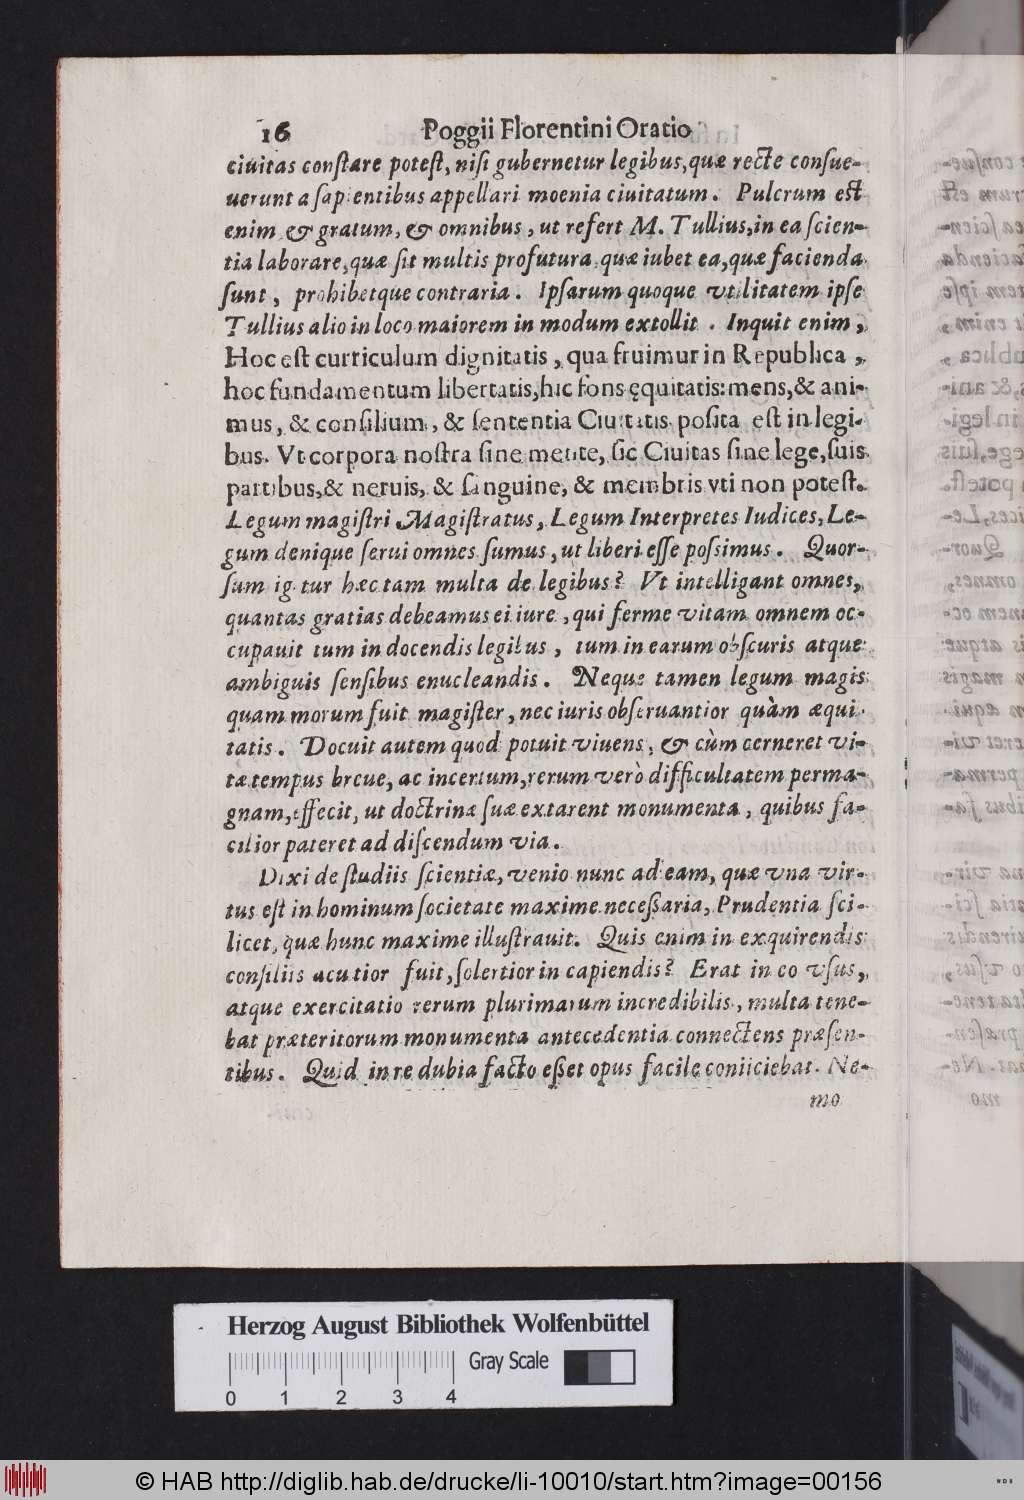 16 Poggii Florentini Oratio
ciuitas conſtare poteſt, niſi gubernetur legibus, quæ recte conſue-
uerunt a ſapientibus appellari moenia ciuitatum. Pulcrum eſt
enim & gratum, & omnibus, ut refert M. Tullius, in ea ſcien-
tia laborare, quæ ſit multis profutura. quæ iubet ea, quæ facienda
ſunt, prohibetque contraria. Ipſarum quoque vtilitatem ipſe
Tullius alio in loco maiorem in modum extollit. Inquit enim,
Hoc eſt curriculum dignitatis, qua fruimur in Republica,
hoc fundamentum libertatis, hic fons ęquitatis: mens, & ani-
mus, & conſilium, & ſententia Ciuitatis poſita eſt in legi-
bus. Vt corpora noſtra ſine mente, ſic Ciuitas ſine lege, ſuis
partibus, & neruis, & ſanguine, & membris vti non poteſt.
Legum magiſtri Magiſtratus, Legum Interpretes Iudices, Le-
gum denique ſerui omnes ſumus, ut liberi eſſe poſsimus. Quor-
ſum igitur hæc tam multa de legibus? Vt intelligant omnes,
quantas gratias debeamus ei iure, qui ferme vitam omnem oc-
cupauit tum in docendis legibus, tum in earum obſcuris atque
ambiguis ſenſibus enucleandis. Neque tamen legum magis
quam morum fuit magiſter, nec iuris obſeruantior quàm æqui-
tatis. Docuit autem quod potuit viuens, & cùm cerneret vi-
tæ tempus breue, ac incertum, rerum verò difficultatem perma-
gnam, effecit, ut doctrinæ ſuæ extarent monumenta, quibus fa-
cilior pateret ad diſcendum via.
Dixi de ſtudiis ſcientiæ, venio nunc ad eam, quæ vna vir-
tus eſt in hominum ſocietate maxime neceſſaria, Prudentia ſci-
licet, quæ hunc maxime illuſtrauit. Quis enim in exquirendis
conſiliis acutior fuit, ſolertior in capiendis? Erat in eo vſus,
atque exercitatio rerum plurimarum incredibilis, multa tene-
bat præteritorum monumenta antecedentia connectens præſen-
tibus. Quid in re dubia facto eſſet opus facile coniiciebat. Ne-
mo
Herzog August Bibliothek Wolfenbüttel
Gray Scale
0 1 2 3 4
© HAB http://diglib.hab.de/drucke/li-10010/start.htm?image=00156